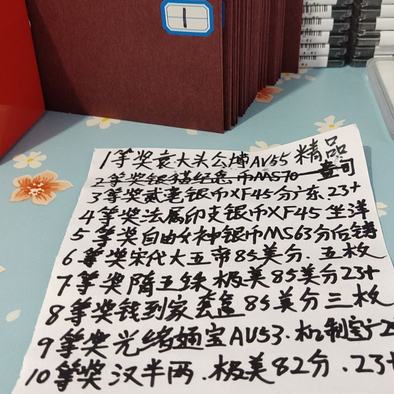 1
1等奖袁大头公博AV55精品
2等奖银猫纪念币MS70 壹司
3等奖贰毫银币XF45分广东.23+
4等奖法属印支银币XF45坐洋
5等奖自由女神银币MS63分后铸
6等奖宋代大五帝85美分.五枚
7等奖隋五铢.极美85美分23+
8等奖钱到家套盒85美分三枚
9等奖光绪通宝AU53.机制
10等奖汉半两.极美82分.23+